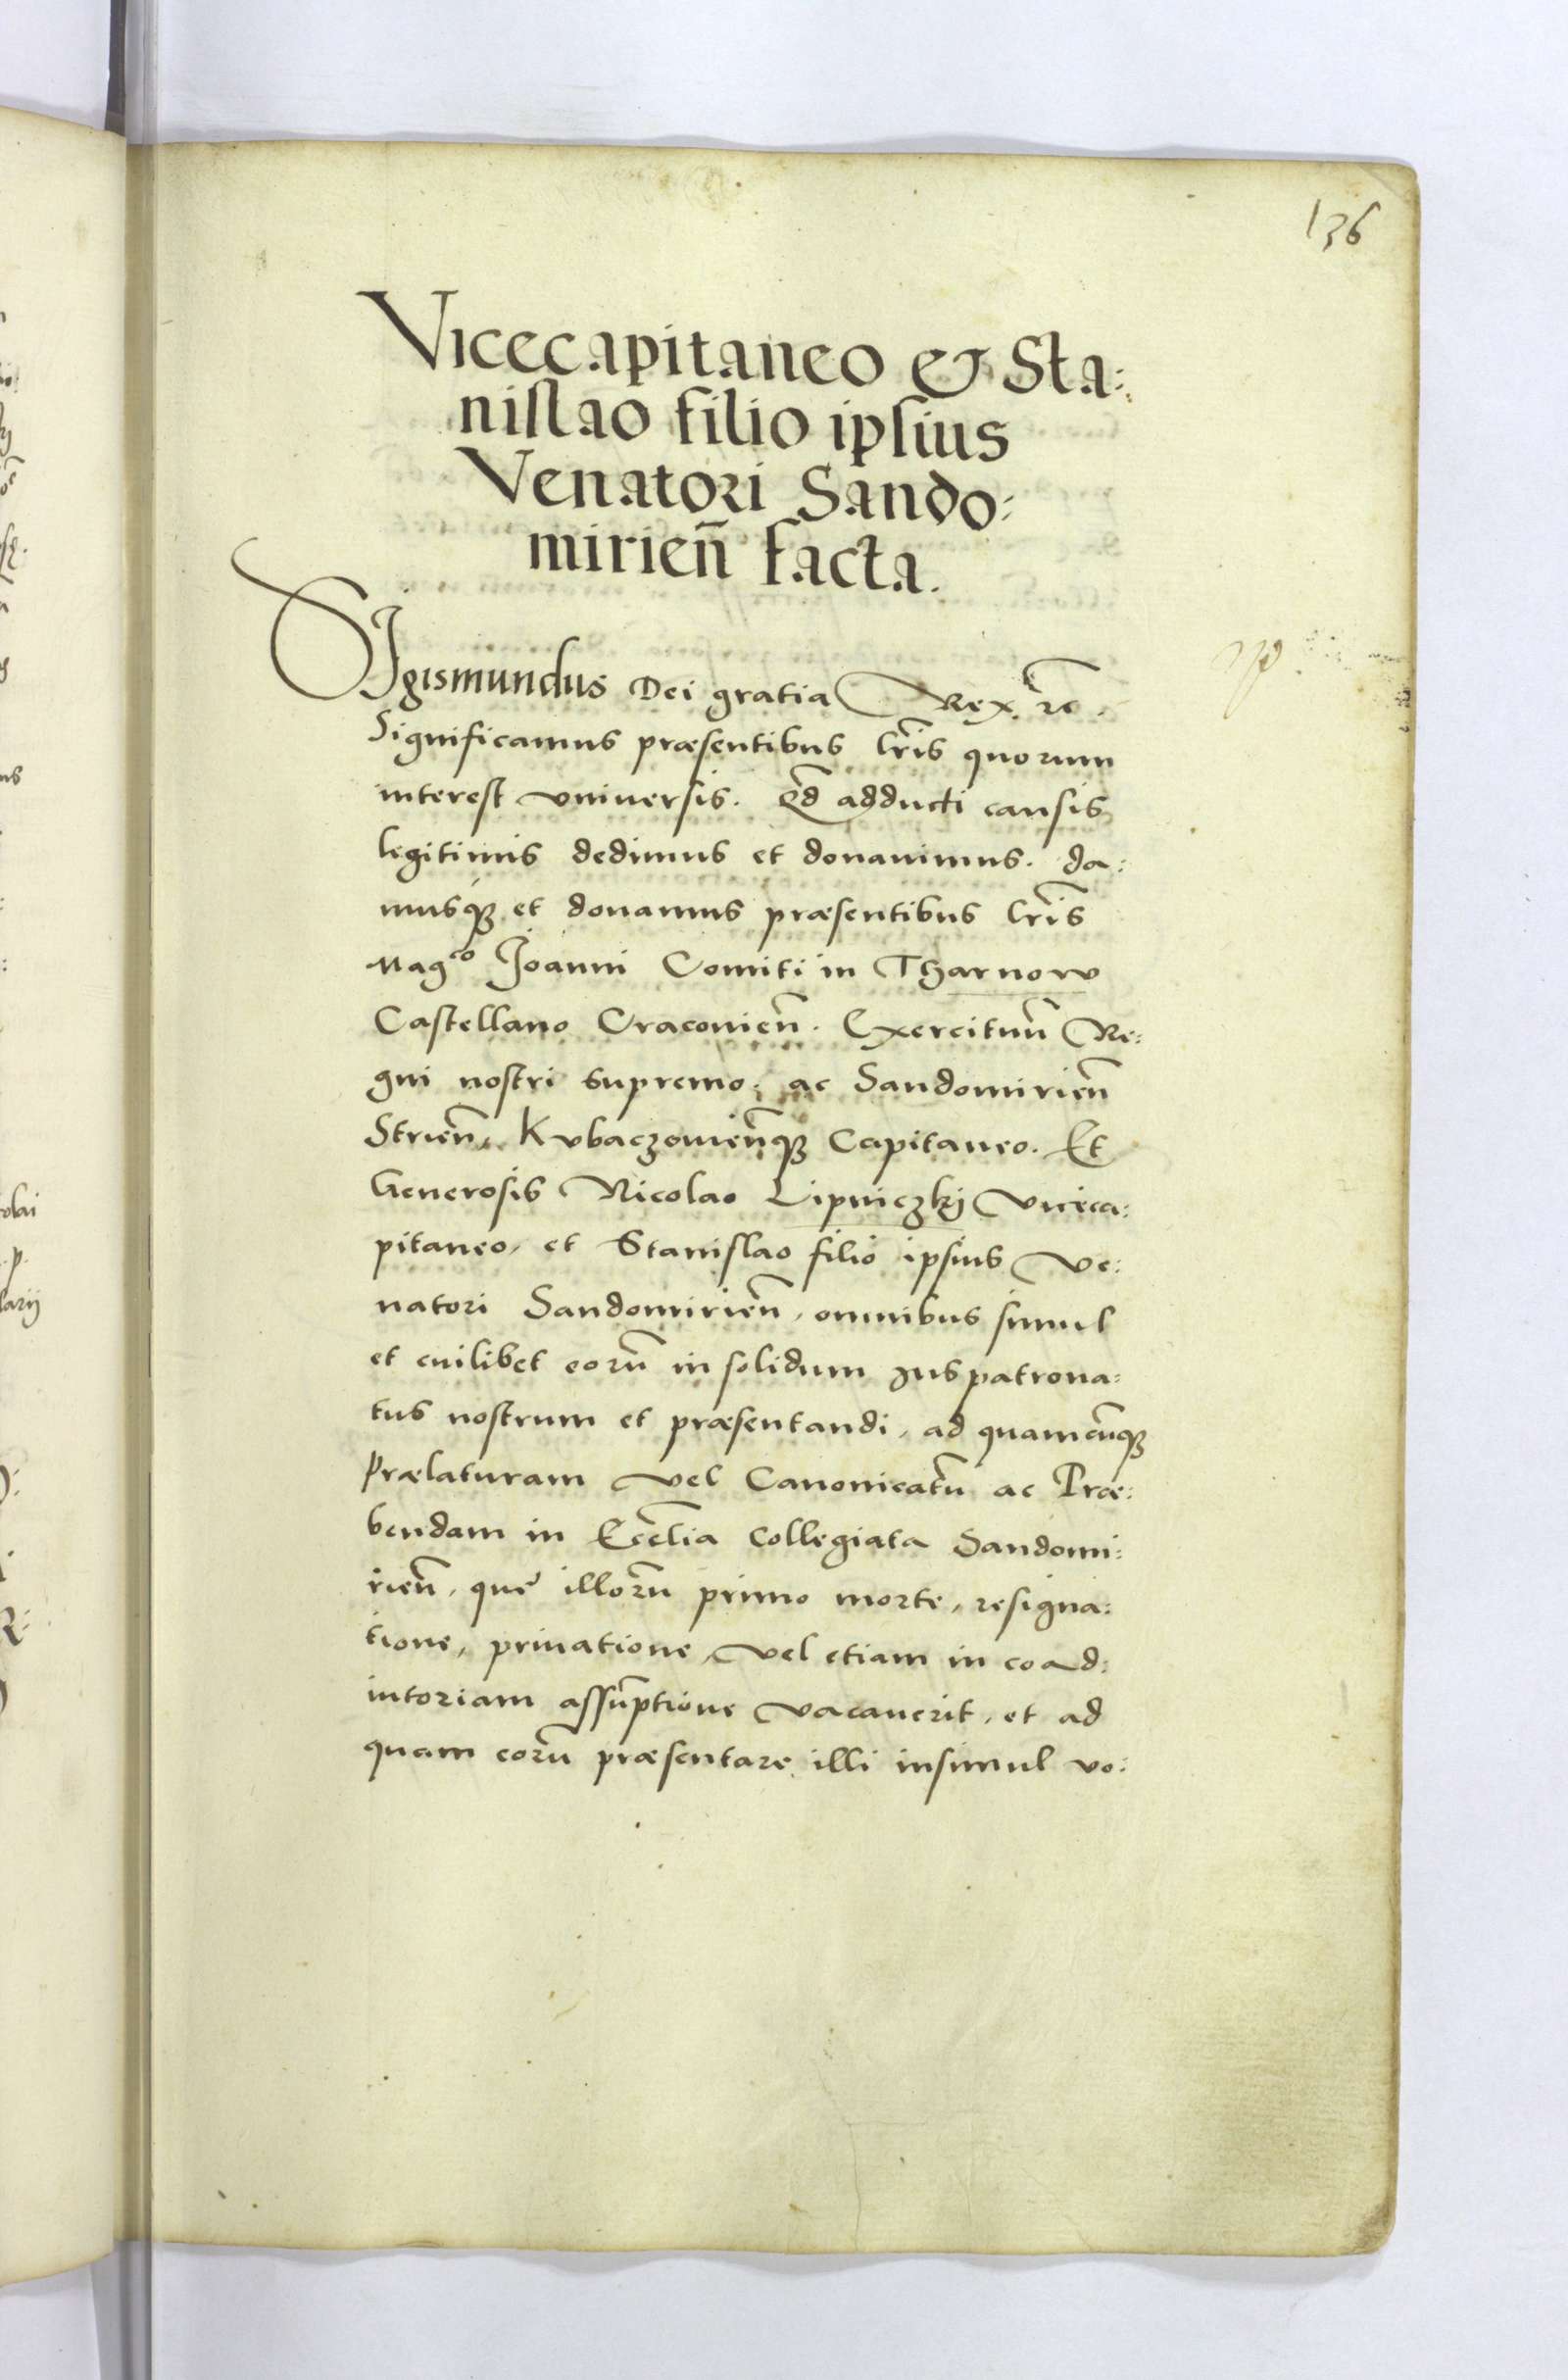 136
Vicecapitaneo & Sta:
nislao filio ipsius
Venatori Sando:
mirien̄ facta.
Sigismundus Dei gratia Rex etc.
Significamus præsentibus lr̄is quorum
interest vniuersis. Qd̄ adducti causis
legitimis dedimus et donauimus. da:
musq3 et donamus præsentibus lr̄is
Mag^co Joanni Comiti in Tharnow
Castellano Cracouien̄. Exercituū Re:
gni nostri supremo. ac Sandomirien̄
Strien̄, Kubaczouien̄q3 Capitaneo. Et
Generosis Nicolao Lipniczkÿ Viceca:
pitaneo, et Stanislao filio ipsius Ve:
natori Sandomirien̄, omnibus simul
et cuilibet eorū in solidum Jus patrona:
tus nostrum et præsentandi, ad quamcūq3
Prælaturam vel Canonicatū ac Præ:
bendam in Ecc̄lia Collegiata Sandomi:
rien̄, quę illorū primo morte, resigna:
tione, priuatione, vel etiam in coad:
iutoriam assūptione vacauerit, et ad
quam eorū præsentare illi insimul vo: